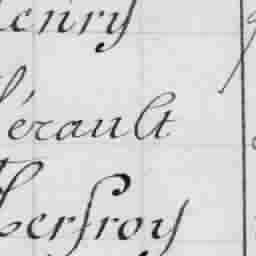 Henry
Hérault
Herfroy